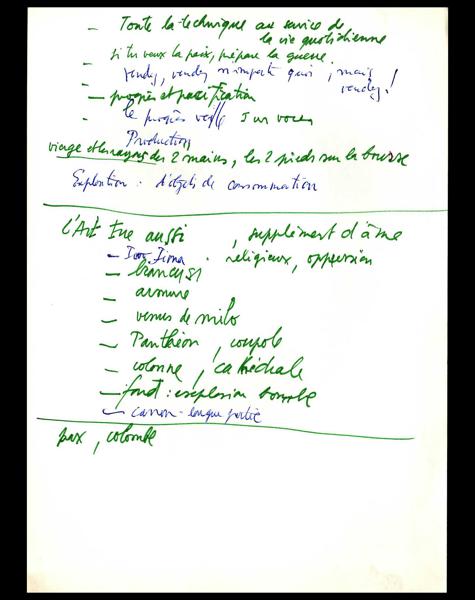 - Toute la technique au service de
la vie quotidienne
- si tu veux la paix, prépare la guerre.
vendez, vendez n'importe quoi, mais
vendez!
- progrès et pacification
- le progrès veille sur vous
Production
visage et les rayons des 2 mains, les 2 pieds sur la bourse
Exploitation : d'objets de consommation
L'Art Tue aussi , supplément d'âme
- . religieux, oppression
- brancusi
- armure
- venus de milo
- Panthéon, coupole
- colonne, cathédrale
- fond : explosion bombe
- canon - longue portée
pax, colombe